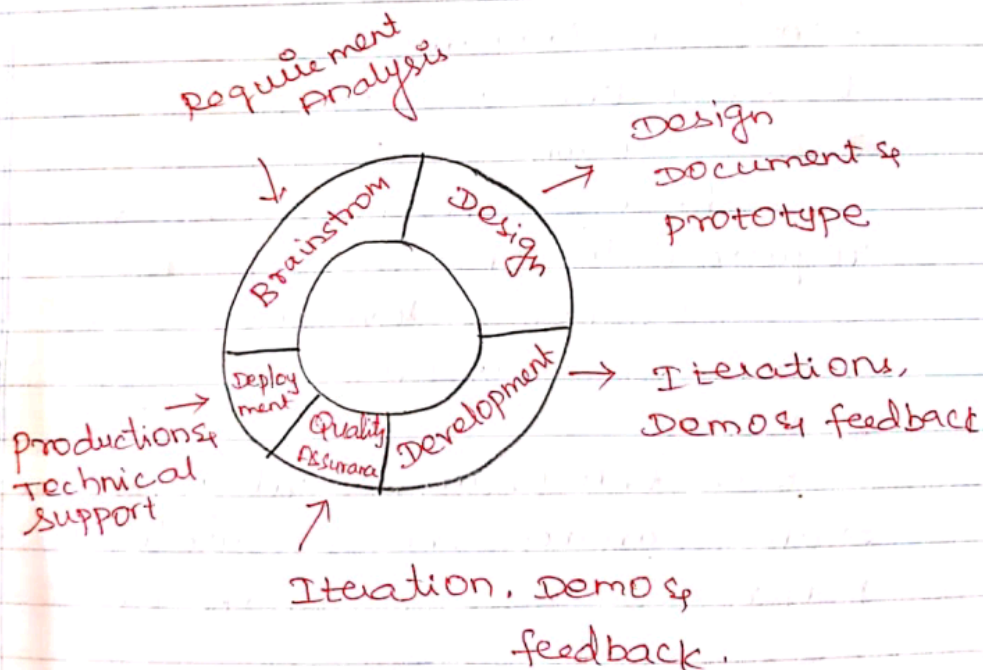 Requirement
Analysis
Design
Document &
prototype
Brainstrom
Design
Deploy
ment
Quality
Assurance
Development
Iterations,
Demo & feedback
Production &
Technical
support
Iteration. Demo &
feedback.